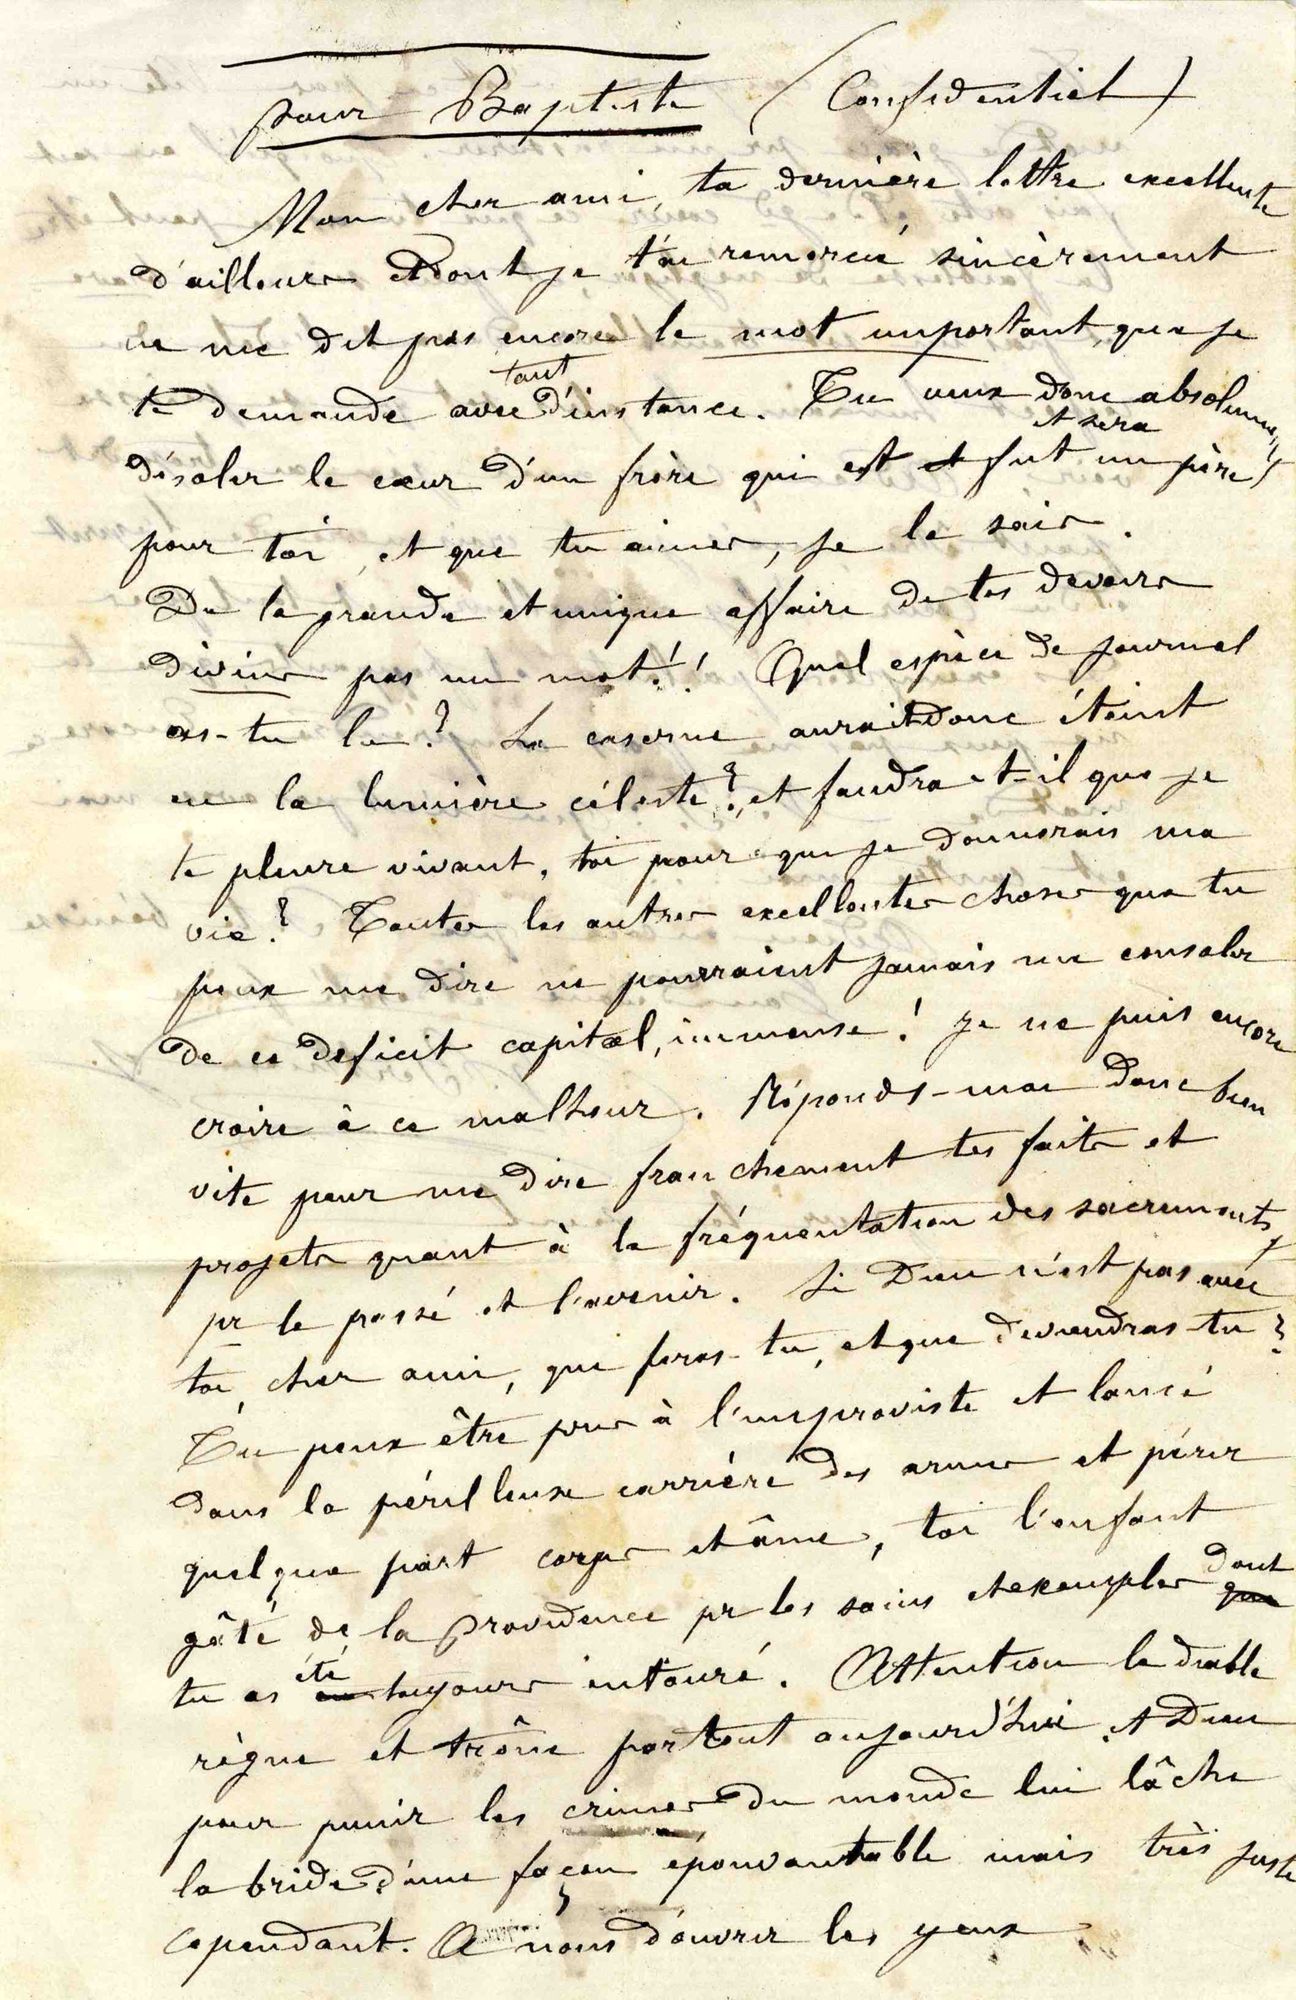 pour Baptiste (Confidentiel)
Mon cher ami, ta dernière lettre excellente
d'ailleurs et dont je t'ai remercié sincèrement
ne me dit pas encore le mot important, que je
te demande avec tant d'instance. Tu veux donc absolument
désoler le cœur d'un frère qui est et fut et sera un père
pour toi, et que tu aimes, je le sais.
De la grande et unique affaire de tes devoirs
divins pas un mot!! Quel espèce de journal
as-tu lu? La caserne aurait donc éteint
en la lumière céleste? et faudra-t-il que je
te pleure vivant, toi pour que je donnerais ma
vie? Toutes les autres excellentes choses que tu
peux me dire ne pourraient jamais me consoler
de ce deficit capital, immense! Je ne puis encore
croire à ce malheur. Réponds-moi donc bien
vite pour me dire franchement tes faits et
projets quant à la fréquentation des sacrements,
pr le passé et l'avenir. Si Dieu n'est pas avec
toi, cher ami, que feras-tu, et que deviendras-tu?
Tu peux être pris à l'improviste et lancé
dans la périlleuse carrière des armes et périr
quelque part corps et âme, toi l'enfant
gâté de la providence pr les soins et exemples que dont
tu as été toujours entouré. Attention le diable
règne et trône partout aujourd'hui, et Dieu
pour punir les crimes du monde lui lâche
la bride d'une façon épouvantable mais très juste
cependant. A nous d'ouvrir les yeux